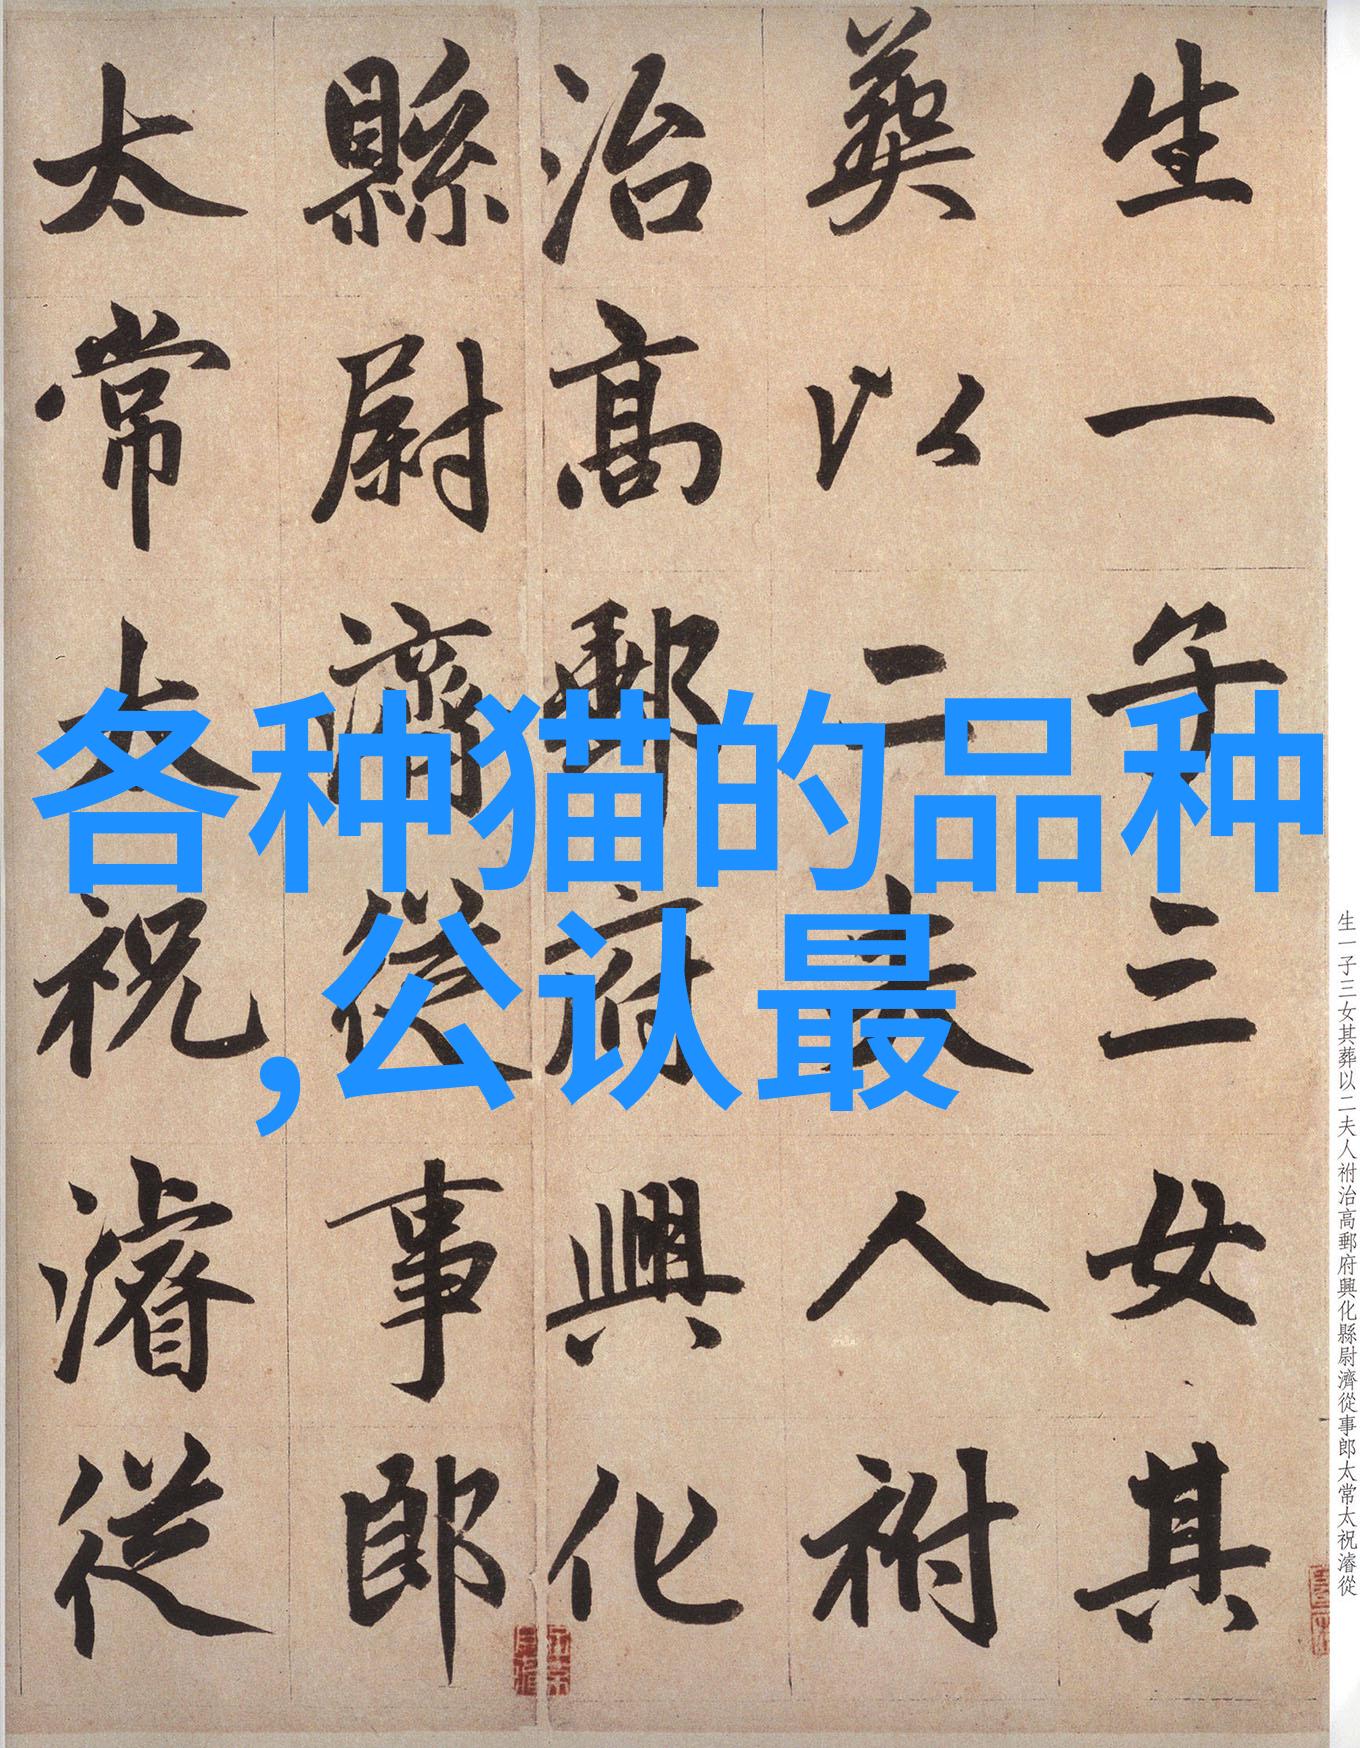 生一子三女其
葬以二夫人祔
治高郵府興化
縣尉濟從事郎
太常太祝濬從
各种猫的品种
,公认最
生一子三女其葬以二夫人祔治高郵府興化縣尉濟從事郎太常太祝濬從